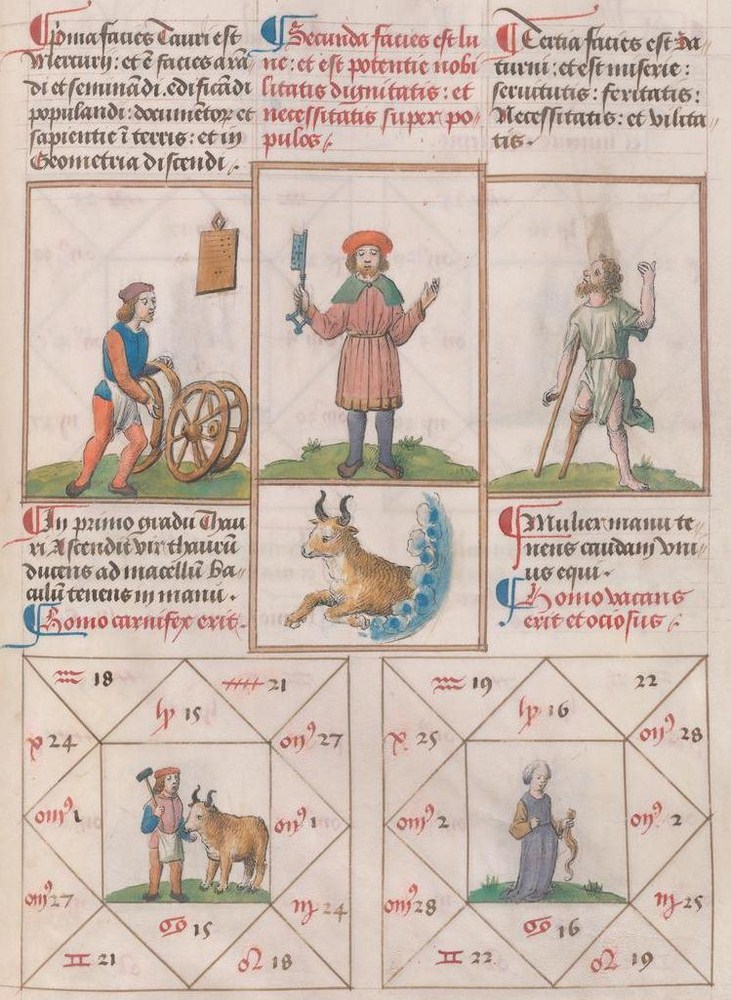 Prima facies Tauri est
Mercurij: et ē facies arā
di et seminādi. edificādi
populandi: documētorꝫ et
sapientie ī terris: et in
Geometria discendi.
Secunda facies est lu
ne: et est potentie nobi
litatis dignitatis: et
necessitatis super po
pulos.
Tertia facies est Sa
turni: et est miserie:
seruitutis: feritatis:
Necessitatis: et vilita
tis.
In primo gradu Thau
ri Ascendit vir thaurū
ducens ad macellū Ba
culū tenens in manu.
Homo carnifex erit.
Mulier manu te
nens caudam vni
us equi.
Homo vacans
erit et ociosus.
♒ 18
21
15
24
27
1
1
27
24
♋ 15
♊ 21
♌ 18
♒ 19
22
16
25
28
2
2
28
25
♋ 16
♊ 22
♌ 19